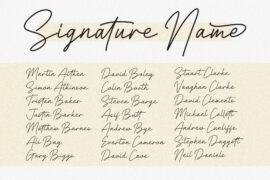 Signature Name
Martin Aitken David Bailey Stuart Clarke
Simon Atkinson Colin Booth Vaughan Clarke
Tristan Baker Steven Barge David Clements
Justin Barker Asif Butt Michael
Matthew Barnes Andrew Bye Andrew Cunliffe
Ali Bay Everton Cameron Stephen Daggett
Gary Biggs David Cave Neil Daniels